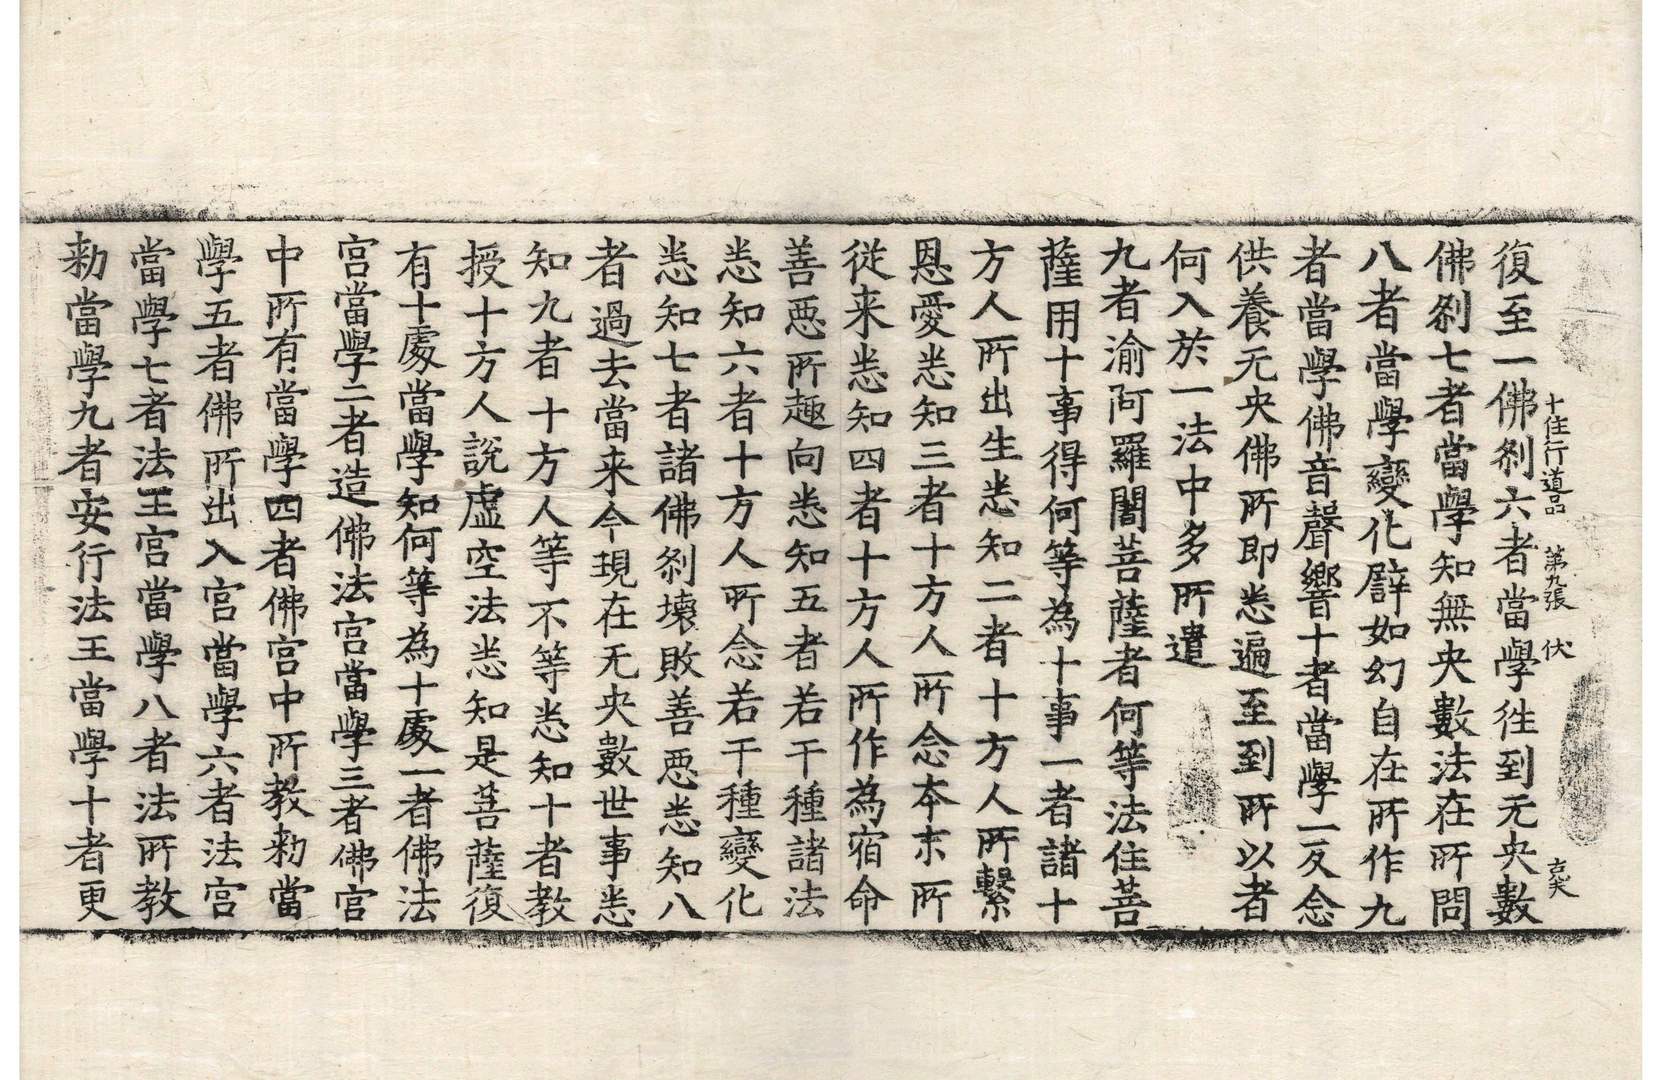 十住行道品 第九張 伏
復至一佛刹六者當學徃到无央數
佛刹七者當學知無央數法在所問
八者當學變化譬如幻自在所作九
者當學佛音聲響十者當學一反念
供養无央佛所即悉遍至到所以者
何入於一法中多所遣
九者渝阿羅闍菩薩者何等法住菩
薩用十事得何等為十事一者諸十
方人所出生悉知二者十方人所繫
恩愛悉知三者十方人所念本末所
從来悉知四者十方人所作為宿命
善惡所趣向悉知五者若干種諸法
悉知六者十方人所念若干種變化
悉知七者諸佛刹壊敗善惡悉知八
者過去當来今現在无央數世事悉
知九者十方人等不等悉知十者教
授十方人說虛空法悉知是菩薩復
有十處當學知何等為十處一者佛法
宮當學二者造佛法宮當學三者佛宮
中所有當學四者佛宮中所教勑當
學五者佛所出入宮當學六者法宮
當學七者法王宮當學八者法所教
勑當學九者安行法王當學十者更